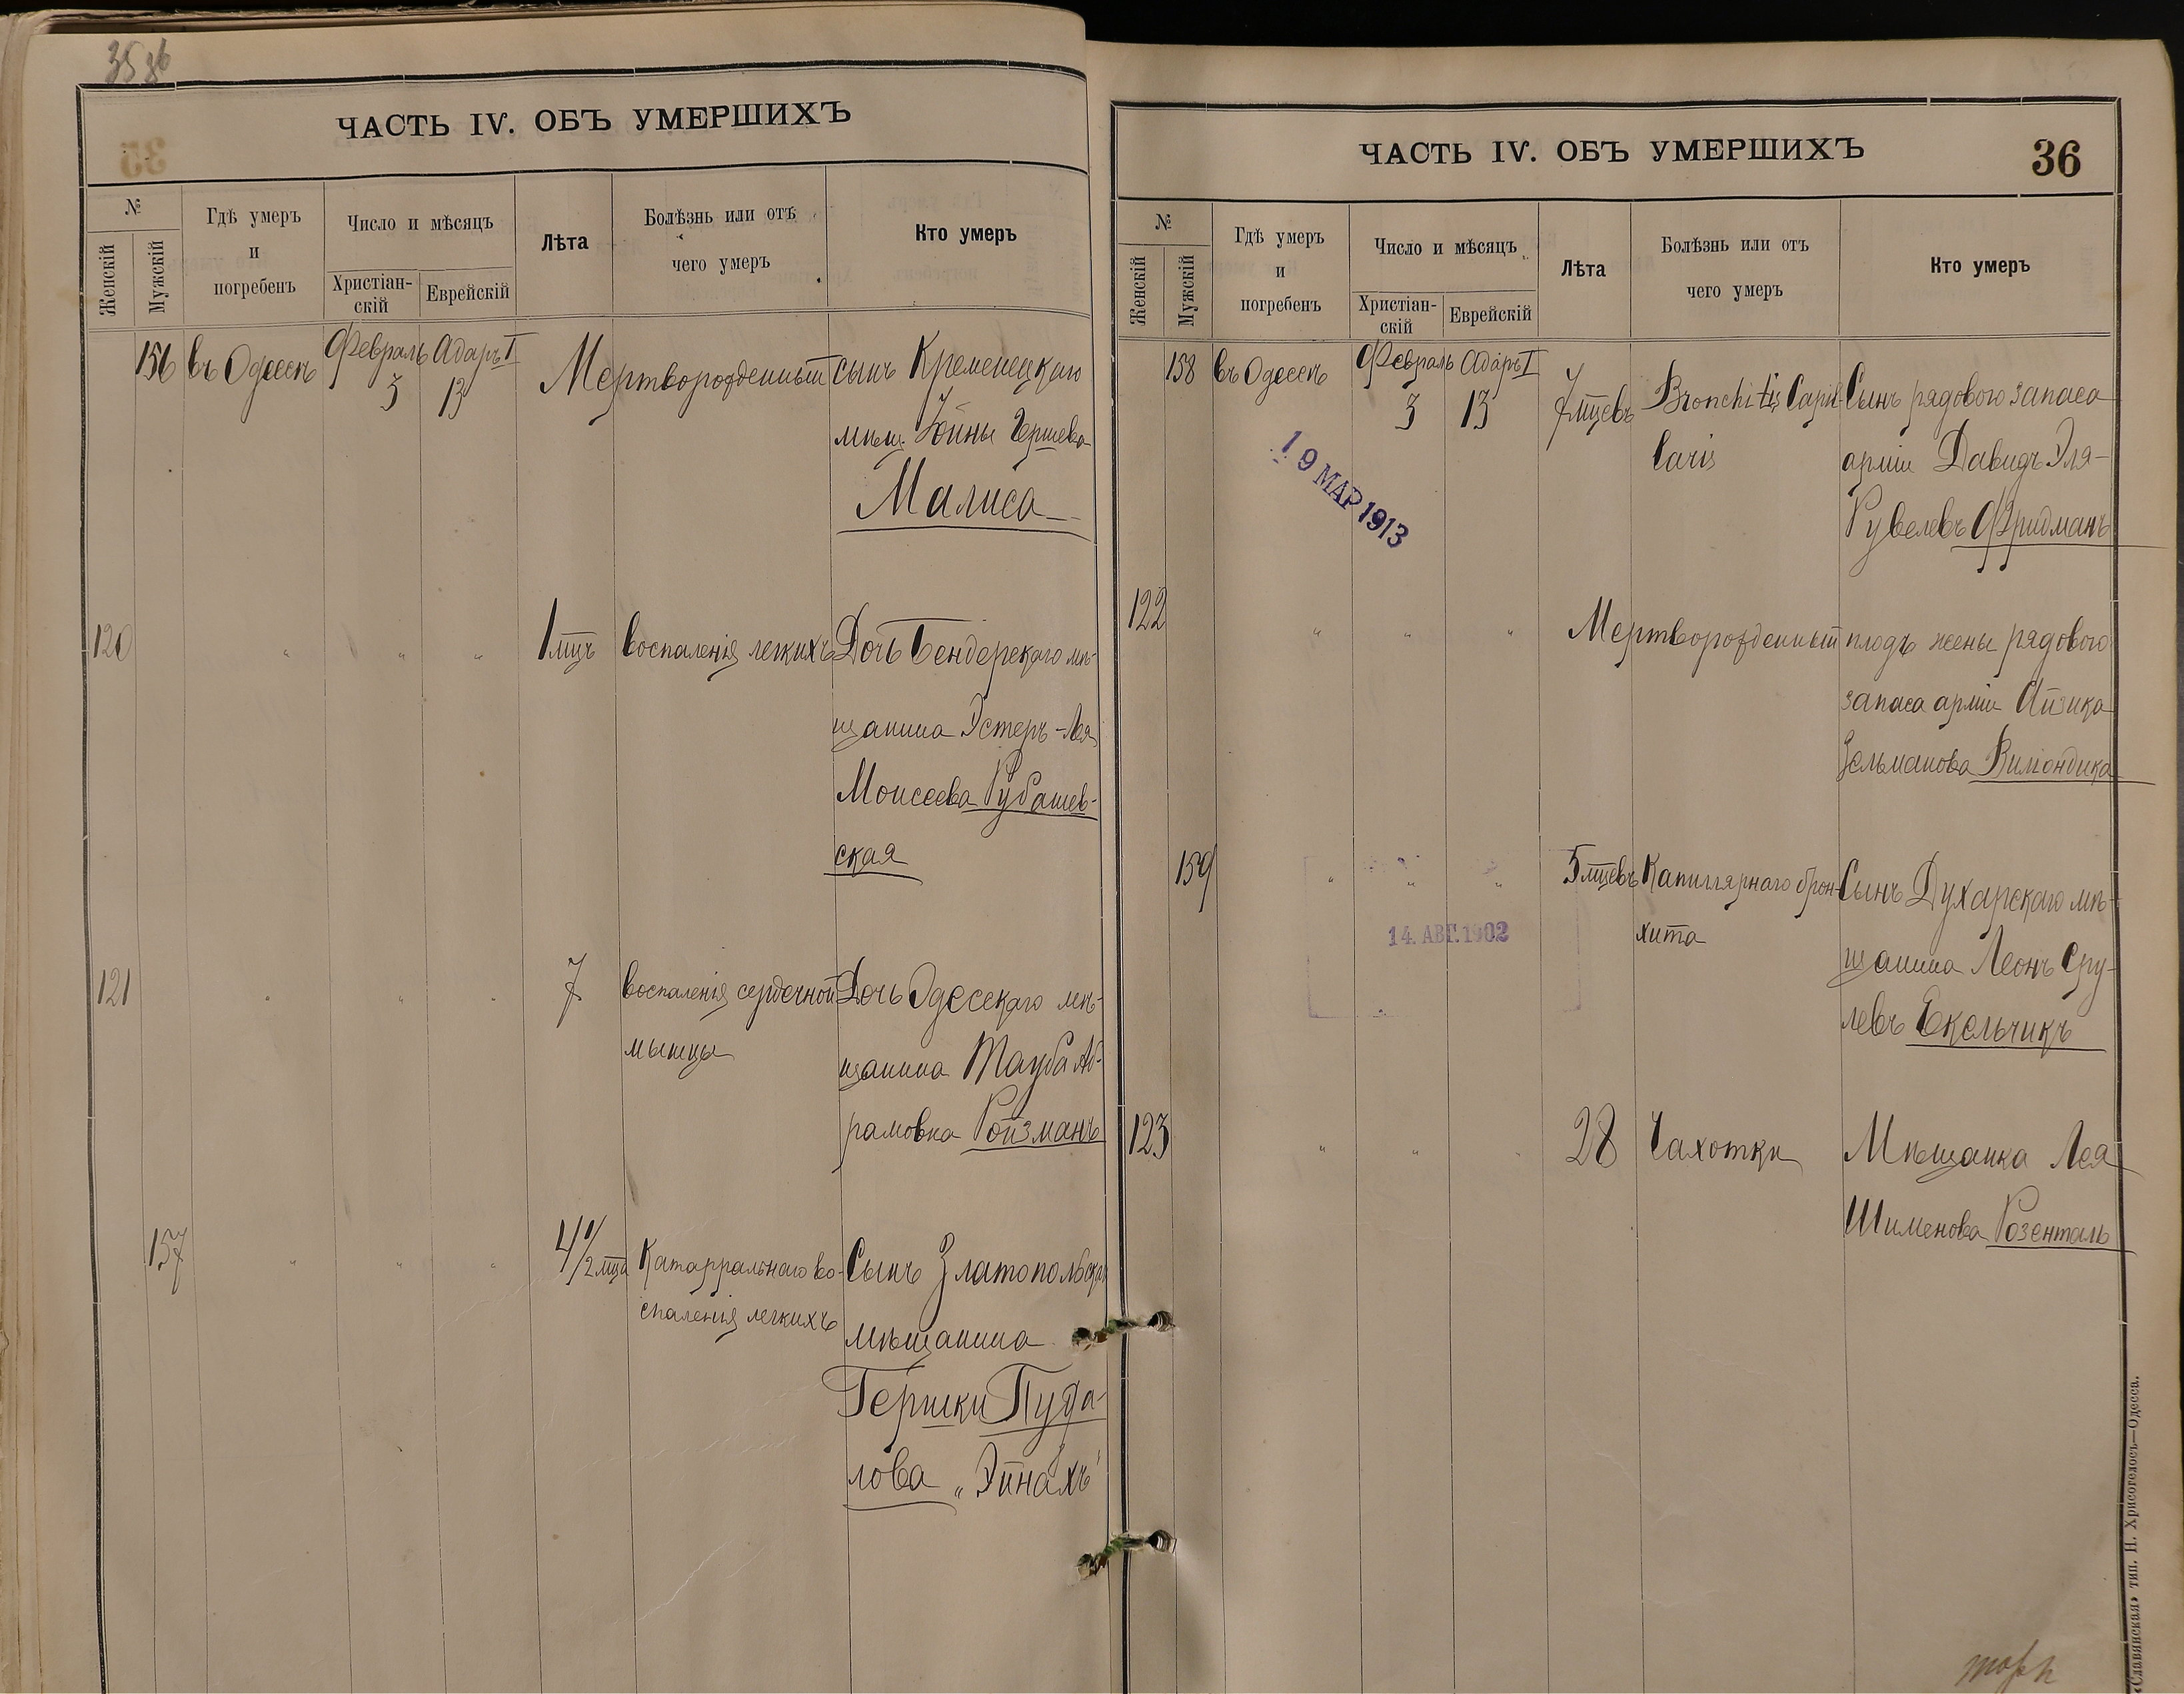 35 об
ЧАСТЬ IV. ОБЪ УМЕРШИХЪ
№
Женскій
Мужскій
Гдѣ умеръ
и
погребенъ
Число и мѣсяцъ
Христіан-
скій
Еврейскій
Лѣта
Болѣзнь или отъ
чего умеръ
Кто умеръ
156 въ Одессѣ Февраль Адаръ I Мертворожденный сынъ Кременецкаго
3 13 мѣщ. Гершева
Малиса
120 " " " 1 мцъ воспаленія легкихъ Дочь Бендерскаго мѣ-
щанина Эстеръ-Лея
Моисеева Рубашев-
ская
121 " " " 7 воспаленія сердечной Дочь Одесскаго мѣ-
мышцы щанина Тауба Аб-
рамовна Ройзманъ
157 " " " 4 1/2 мца Катарральнаго во- Сынъ Златопольскаго
спаленія легкихъ мѣщанина
Гершки Пуда-
лова „Эйнахъ"
ЧАСТЬ IV. ОБЪ УМЕРШИХЪ
36
№
Женскій
Мужскій
Гдѣ умеръ
и
погребенъ
Число и мѣсяцъ
Христіан-
скій
Еврейскій
Лѣта
Болѣзнь или отъ
чего умеръ
Кто умеръ
158 въ Одессѣ Февраль Адаръ I 7 мцевъ Bronchitis Capil- Сынъ рядового запаса
3 13 laris арміи Давидъ Эля-
Рувелевъ Фридманъ
19 МАР 1913
122 " " " Мертворожденный плодъ жены рядового
запаса арміи Айзика
Зельманова
159 " " " 5 мцевъ Капиллярнаго брон- Сынъ Духарскаго мѣ-
хита щанина Леонъ Сру-
левъ Екельчикъ
14. АВГ. 1902
123 " " " 28 Чахотки Мѣщанка Лея
Шименова Розенталь
«Славянская» тип. Н. Хрисогелосъ—Одесса.